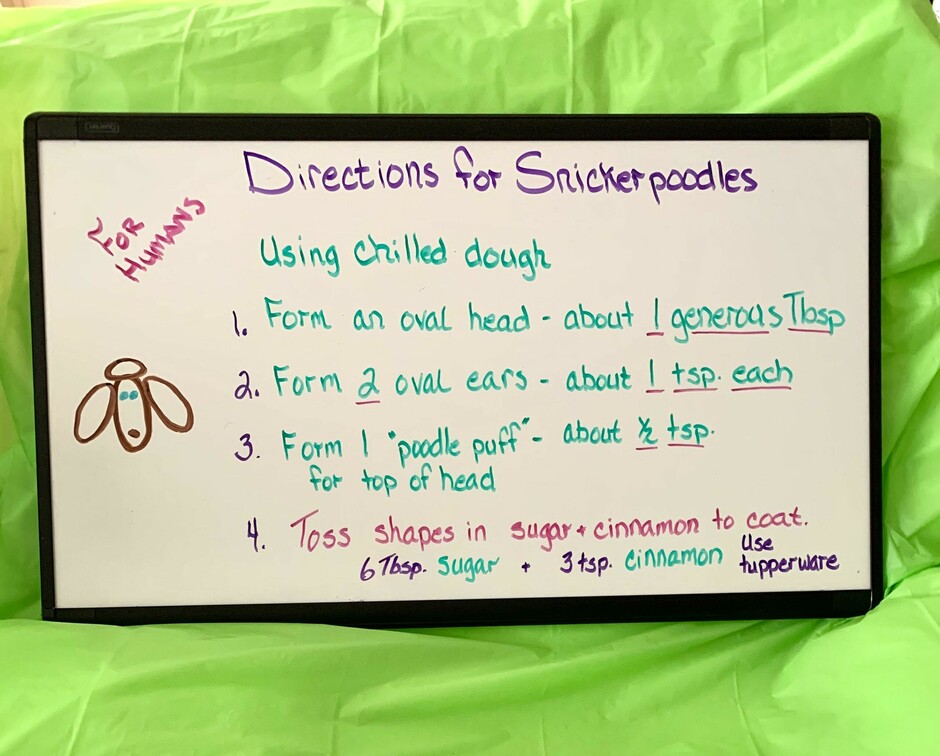 Directions for Snickerpoodles
FOR
HUMANS
Using chilled dough
1. Form an oval head - about 1 generous Tbsp
2. Form 2 oval ears - about 1 tsp. each
3. Form 1 "poodle puff" - about ½ tsp.
for top of head
4. Toss shapes in sugar + cinnamon to coat.
6 Tbsp. sugar + 3 tsp. cinnamon Use
tupperware